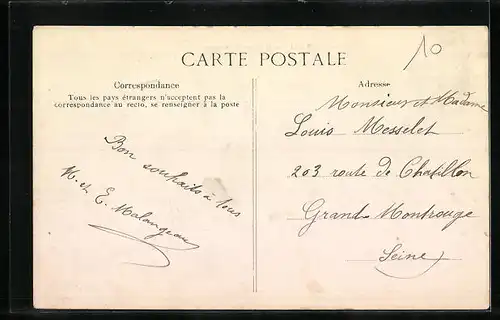 CARTE POSTALE
10
Correspondance
Tous les pays étrangers n'acceptent pas la
correspondance au recto, se renseigner à la poste
Bon souhaits à tous
M. et E. Malangeau
Adresse
Monsieur et Madame
Louis Messelet
203 route de Chatillon
Grand Montrouge
Seine